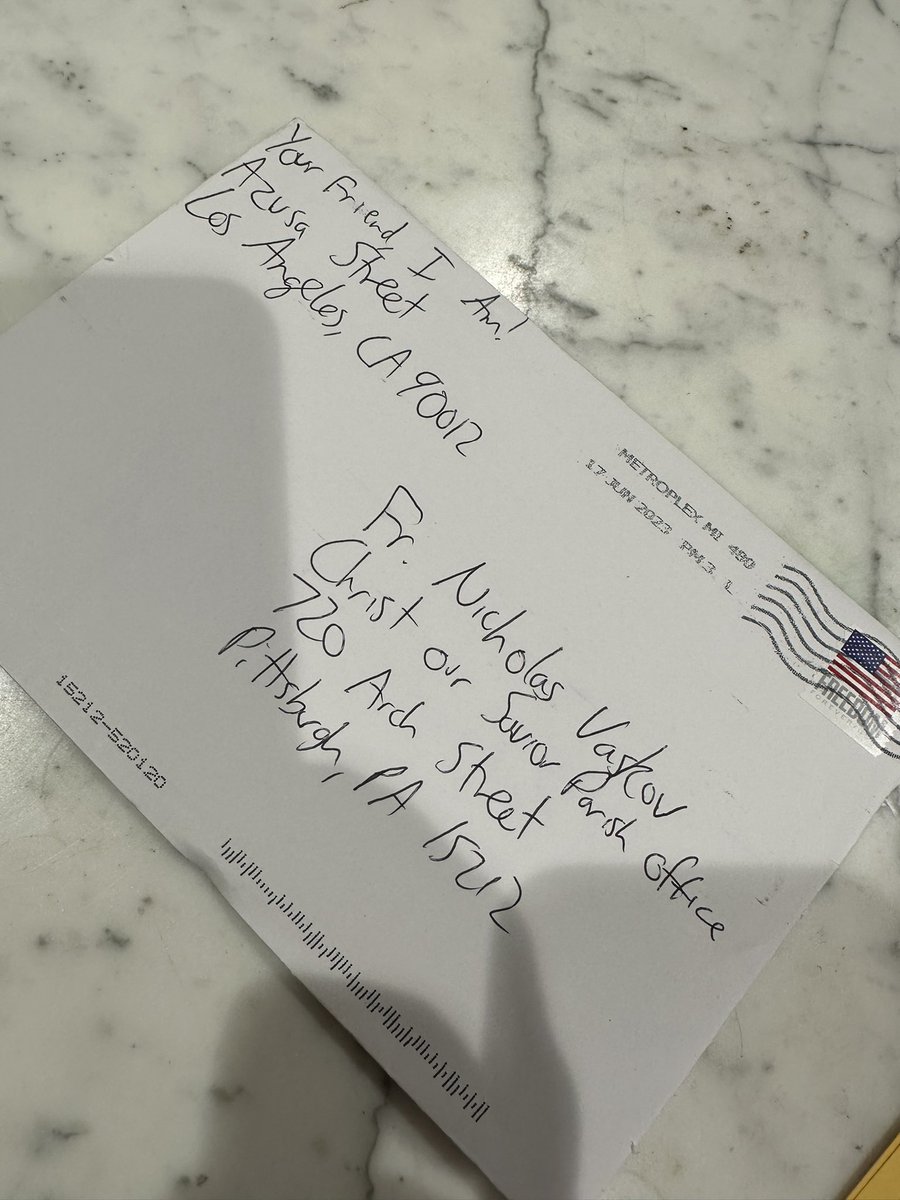 Your Friend, I Am!
Azusa Street
Los Angeles, CA 90012
METROPLEX MI 480
17 JUN 2023 PM 3 L
FREEDOM
Fr. Nicholas Vaskov
Christ our Savior Parish Office
720 Arch Street
Pittsburgh, PA 15212
15212-520120